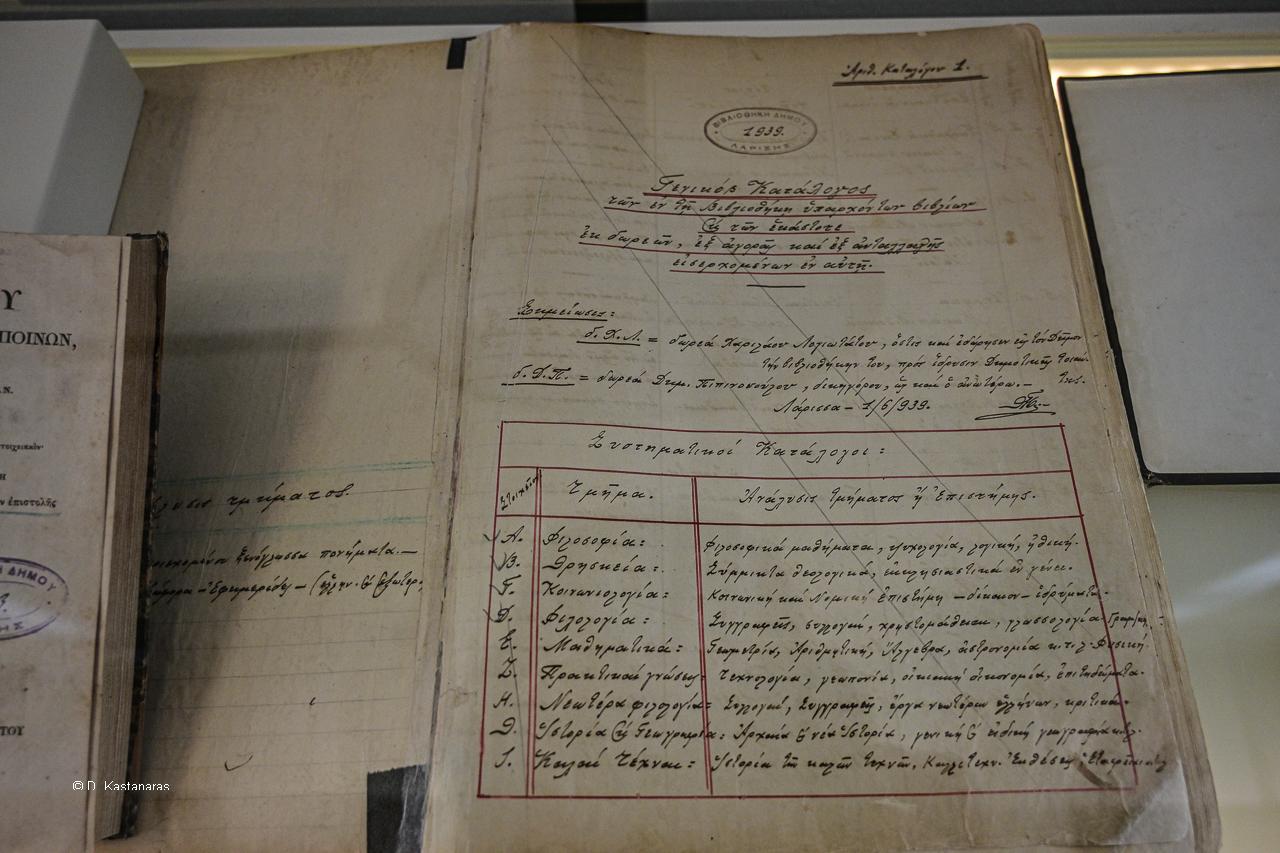 Ἀριθ. Καταλόγου 1.
ΒΙΒΛΙΟΘΗΚΗ ΔΗΜΟΥ
1939.
ΛΑΡΙΣΗΣ
Γενικός Κατάλογος
τῶν ἐν τῇ Βιβλιοθήκῃ ὑπαρχόντων βιβλίων
τῶν ἑκάστοτε
ἐκ δωρεῶν, ἐξ ἀγορᾶς καὶ ἐξ ἀνταλλαγῆς
εἰσερχομένων ἐν αὐτῇ.
Σημείωσις:
δ. Χ. Λ. = δωρεά Χαριλάου Λογιωτάτου, ὅστις καὶ ἐδώρησεν εἰς τὸν Δῆμον
τὴν βιβλιοθήκην του, πρὸς ἵδρυσιν Δημοτικῆς
δ. Δ. Π. = δωρεά Δημ. Πιπινοπούλου, δικηγόρου, ὡς καὶ ὁ ἀνωτέρω.–
Λάρισσα – 1/6/939.
Συστηματικοί Κατάλογοι:
Στοιχεῖον
Τμῆμα.
Ἀνάλυσις τμήματος ἢ Ἐπιστήμης.
Α. Φιλοσοφία: Φιλοσοφικά μαθήματα, ψυχολογία, λογική, ἠθική.
Β. Θρησκεία: Σύμμικτα θεολογικά, ἐκκλησιαστικά ἐν γένει.
Γ. Κοινωνιολογία: Κοινωνική καὶ Νομική ἐπιστήμη – δίκαιον – ἱδρύματα.
Δ. Φιλολογία: Συγγραφεῖς, συλλογαί, χρηστομάθειαι, γλωσσολογία
Ε. Μαθηματικά: Γεωμετρία, Ἀριθμητική, Ἄλγεβρα, ἀστρονομία κ.τ.λ. Φυσική.
Ζ. Πρακτικαί γνώσεις: Τεχνολογία, γεωπονία, οἰκιακή οἰκονομία, ἐπιτηδεύματα.
Η. Νεωτέρα φιλολογία: Συλλογαί, Συγγραφεῖς, ἔργα νεωτέρων ἑλλήνων, κριτικά.
Θ. Ἱστορία Γεωγραφία: Ἀρχαία νέα Ἱστορία, γενική εἰδική γεωγραφία κ.τ.λ.
Ι. Καλαί Τέχναι: Ἱστορία τῶν καλῶν τεχνῶν, Καλλιτεχν. Ἐκθέσεις
τμήματος.
ξενόγλωσσα πονήματα.–
Ἐφημερίδες
Υ
ΠΟΙΝΩΝ,
ΑΝ.
Η
ἐπιστολῆς
ΔΗΜΟΥ
ΤΟΥ
© D. Kastanaras